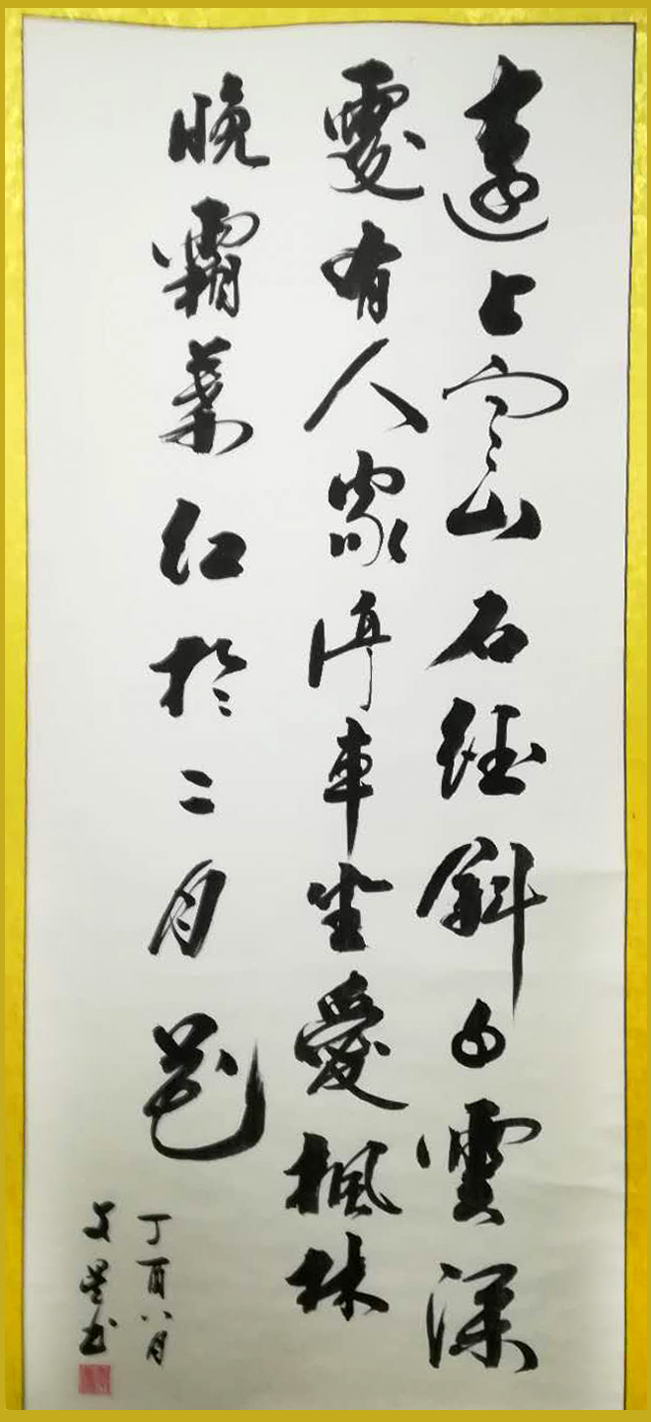 遠上寒山石徑斜白雲深
處有人家停車坐愛楓林
晚霜葉紅於二月花
丁酉八月
文星书